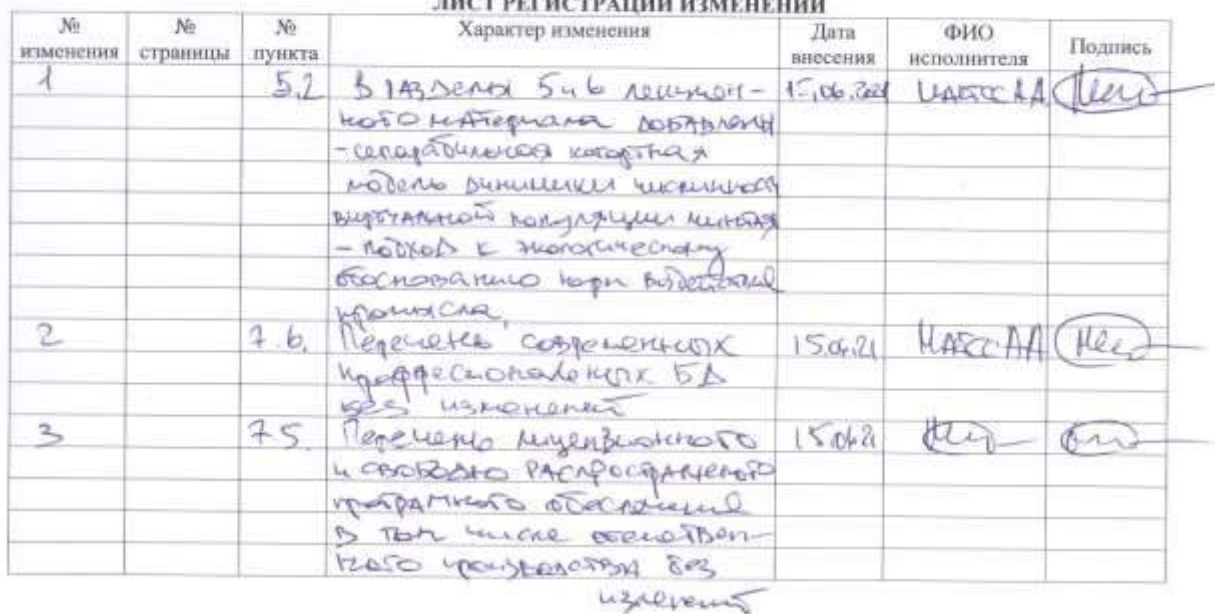 ЛИСТ РЕГИСТРАЦИИ ИЗМЕНЕНИЙ
№ изменения № страницы № пункта Характер изменения Дата внесения ФИО исполнителя Подпись
1 5.2 В разделы 5 и 6 лекцион-
ного материала добавлены
- сепарабильная когортная
модель динамики численности
виртуальной популяции минтая
- подход к экологическому
обоснованию воздействия
промысла.
2 7.6. Перечень современных 15.06.21
профессиональных БД
без изменений
3 7.5. Перечень лицензионного 15.06.21
и свободно распространяемого
программного обеспечения
В том числе отечествен-
ного производства без
изменений